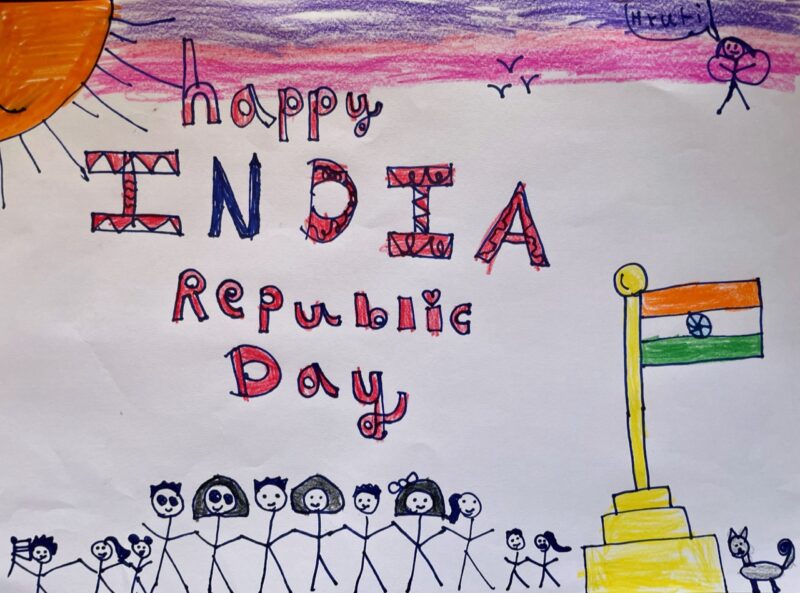 Hruti
happy
INDIA
Republic
Day